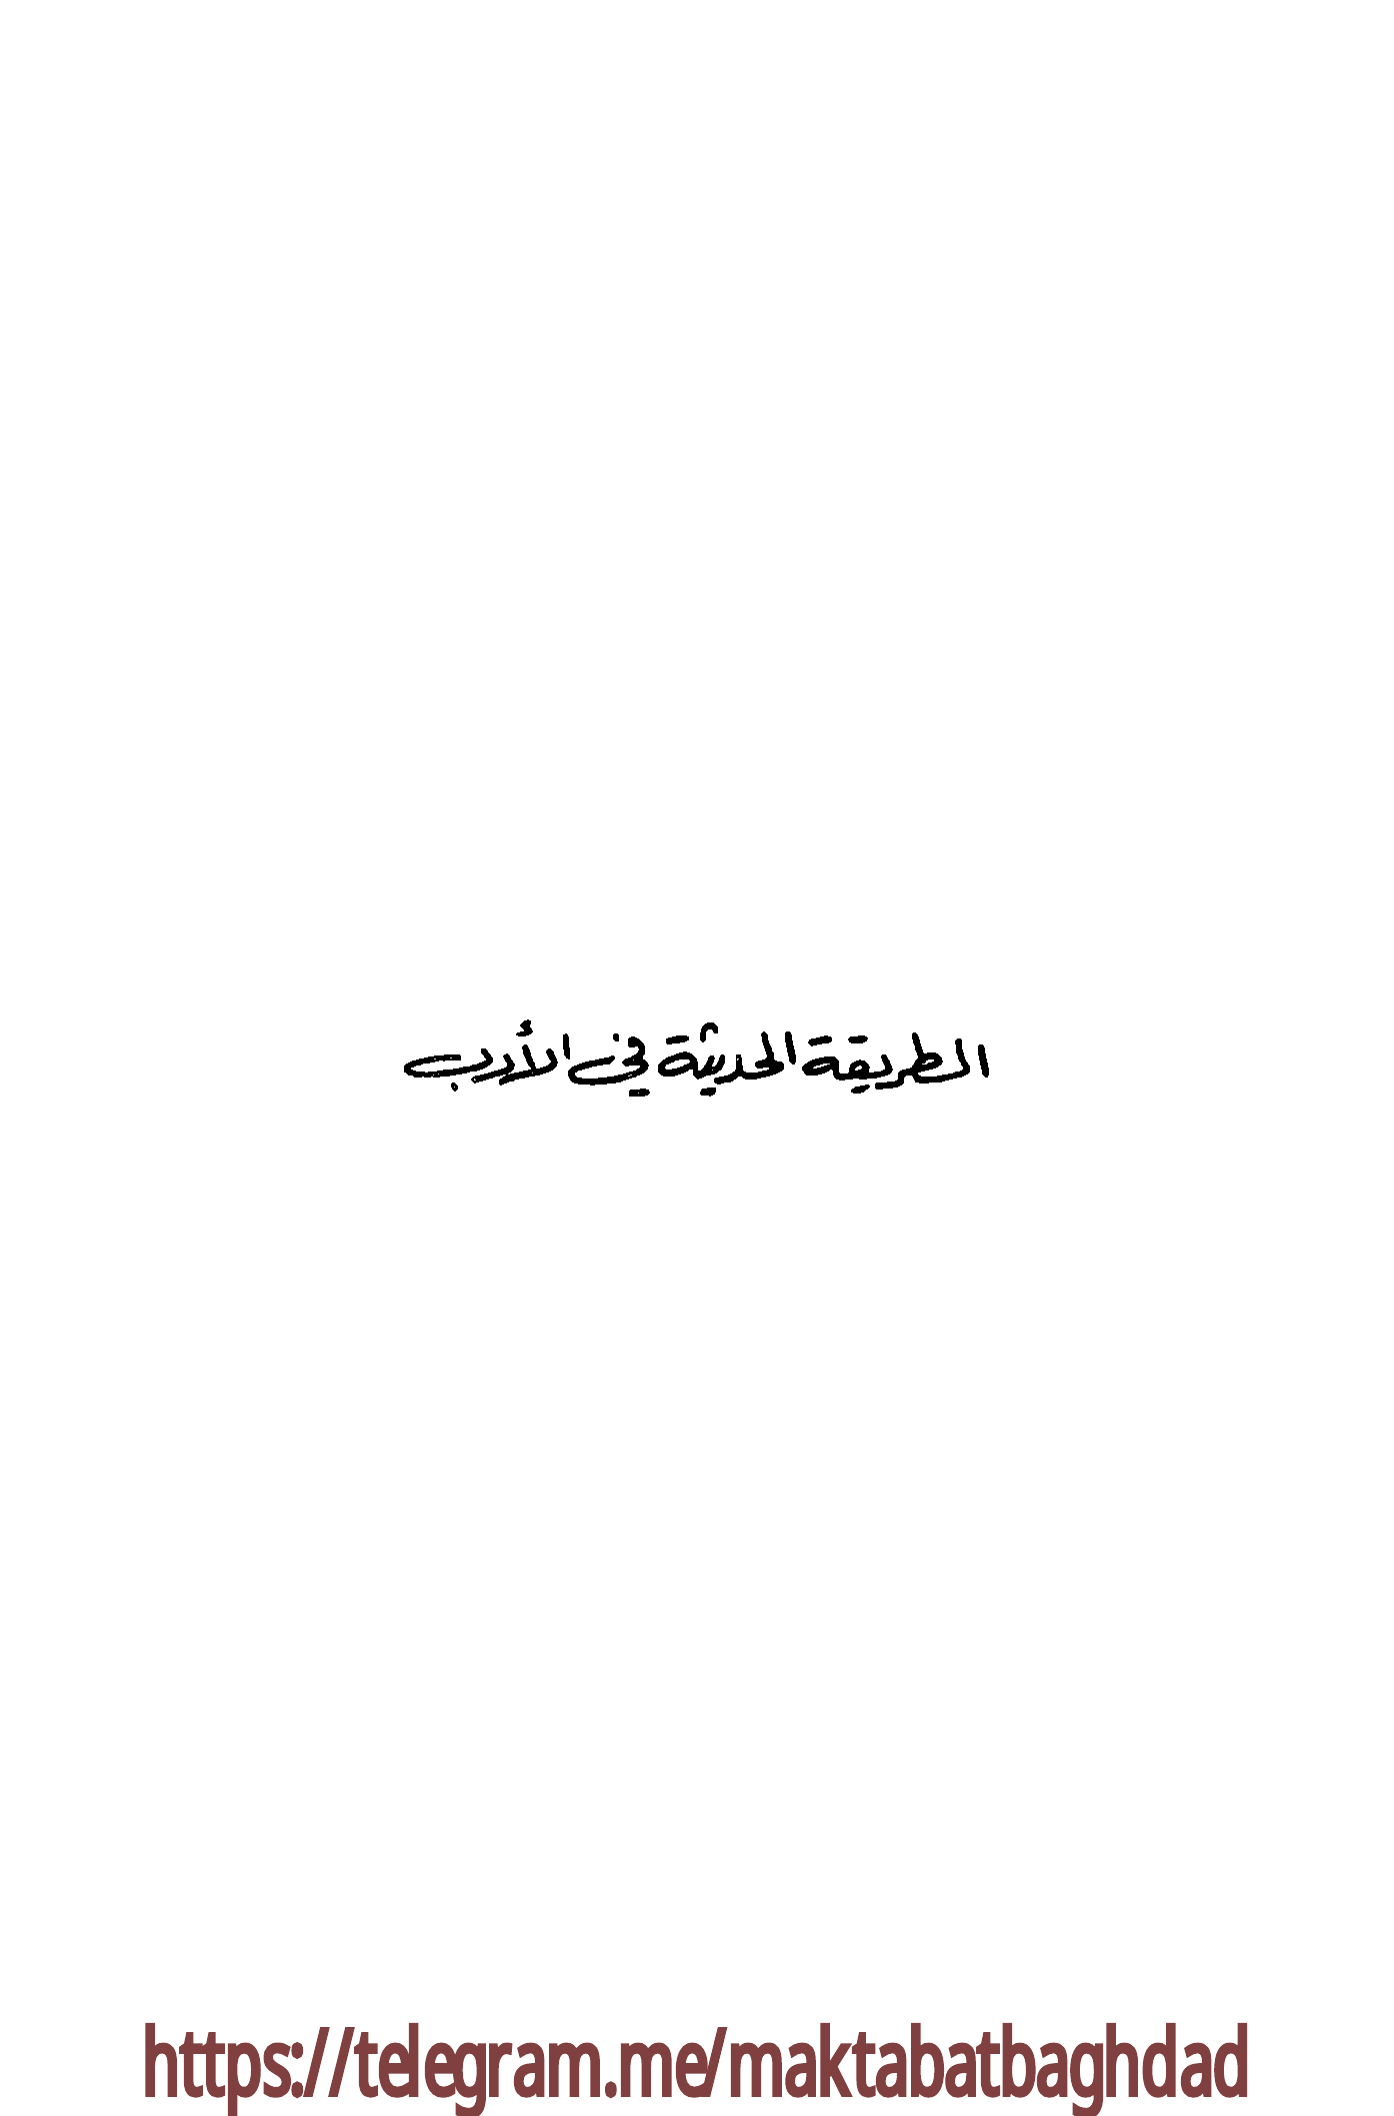 الطريقة الحديثة في الأدب
https://telegram.me/maktabatbaghdad